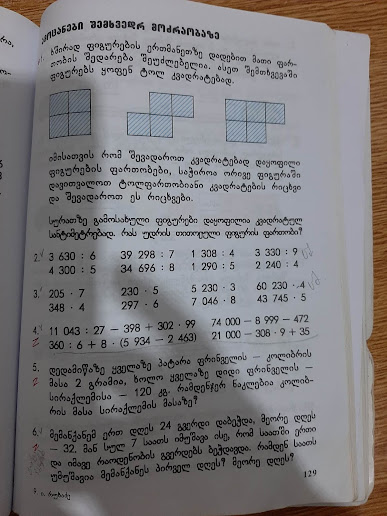 ამოცანები შემხვედრ მოძრაობაზე
1. ხშირად ფიგურების ერთმანეთზე დადებით მათი ფარ-
თობის შედარება შეუძლებელია. ასეთ შემთხვევაში
ფიგურებს ყოფენ ტოლ კვადრატებად.
იმისათვის რომ შევადაროთ კვადრატებად დაყოფილი
ფიგურების ფართობები, საჭიროა ორივე ფიგურაში
დავითვალოთ ტოლფართობიანი კვადრატების რიცხვი
და შევადაროთ ეს რიცხვები.
სურათზე გამოსახული ფიგურები დაყოფილია კვადრატულ
სანტიმეტრებად. რას უდრის თითოეული ფიგურის ფართობი?
2. 3 630 : 6 39 298 : 7 1 308 : 4 3 330 : 9
4 300 : 5 34 696 : 8 1 290 : 5 2 240 : 4
3. 205 · 7 230 · 5 5 230 · 3 60 230 · 4
348 · 4 297 · 6 7 046 · 8 43 745 · 5
4. 11 043 : 27 – 398 + 302 · 99 74 000 – 8 999 – 472
360 : 6 + 8 · (5 934 – 2 463) 21 000 – 308 · 9 + 35
5. დედამიწაზე ყველაზე პატარა ფრინველის – კოლიბრის
მასა 2 გრამია, ხოლო ყველაზე დიდი ფრინველის –
სირაქლემისა – 120 კგ. რამდენჯერ ნაკლებია კოლიბ-
რის მასა სირაქლემის მასაზე?
6. მემანქანემ ერთ დღეს 24 გვერდი დაბეჭდა, მეორე დღეს
– 32. მან სულ 7 საათს იმუშავა ისე, რომ საათში ერთი
და იმავე რაოდენობის გვერდებს ბეჭდავდა. რამდენ საათს
უმუშავია მემანქანეს პირველ დღეს? მეორე დღეს?
129